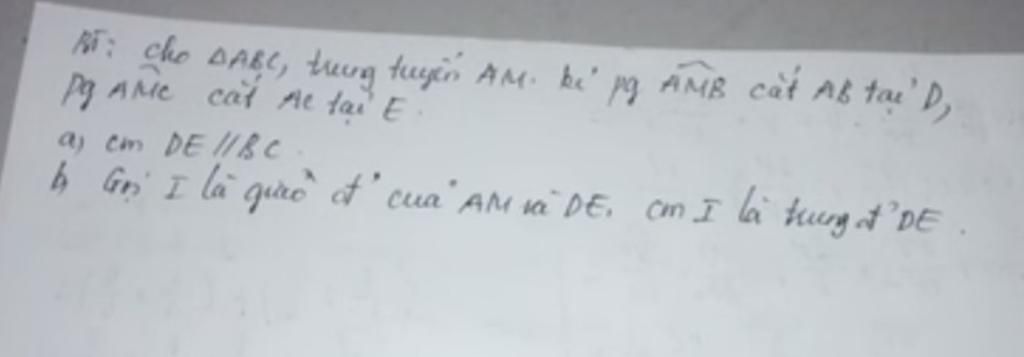 BT: Cho ΔABC, trung tuyến AM. kẻ pg AMB cắt AB tại D,
pg AMC cắt AC tại E.
a) cm DE//BC.
b) Gọi I là giao đ' của AM và DE, cm I là trung đ' DE.